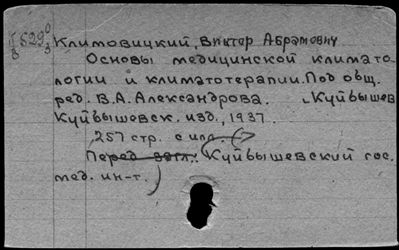 529
Климовицкий, Виктор Абрамович
Основы медицинской климато-
логии и климотерапии. Под общ.
ред. В.А. Александрова. Куйбышев
Куйбышевск. изд., 1937.
257 стр. с илл.
Перед загл.: Куйбышевский гос.
мед. ин-т.